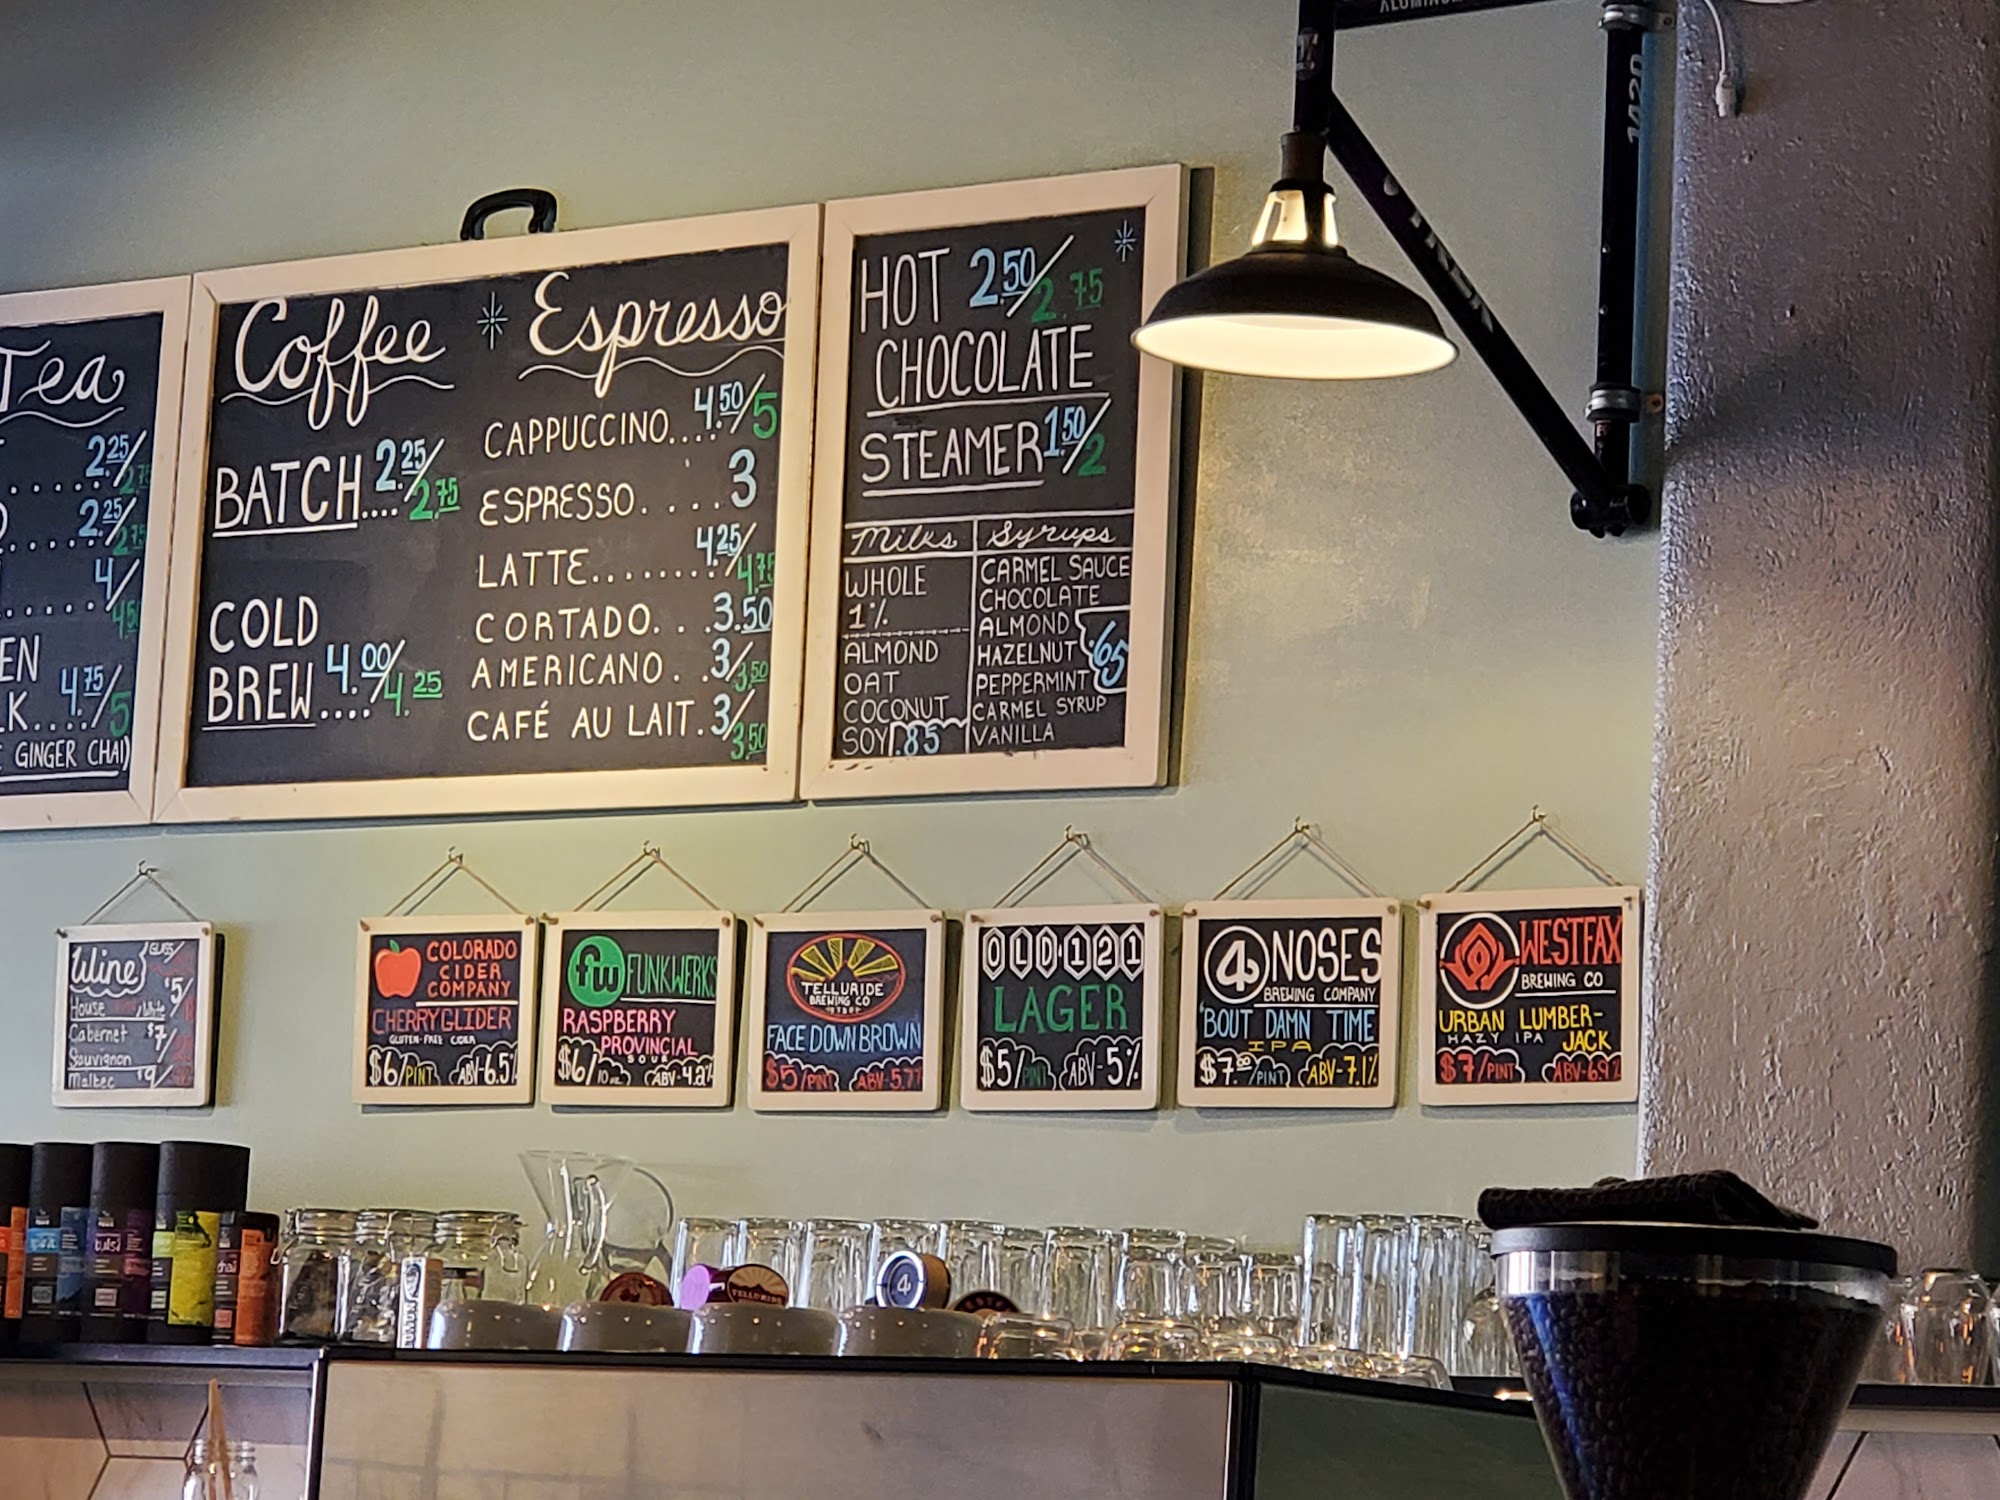 ALUMINUM
1420
Tea
2.25/2.75
2.25/2.75
4/4.50
EN
K....4.75/5
GINGER CHAI)
Coffee
BATCH....2.25/2.75
COLD
BREW....4.00/4.25
Espresso
CAPPUCCINO....4.50/5
ESPRESSO....3
LATTE........4.25/4.75
CORTADO...3.50
AMERICANO..3/3.50
CAFÉ AU LAIT.3/3.50
HOT 2.50/2.75
CHOCOLATE
STEAMER 1.50/2
Milks
WHOLE
1%
ALMOND
OAT
COCONUT
SOY .85
Syrups
CARMEL SAUCE
CHOCOLATE
ALMOND
HAZELNUT .65
PEPPERMINT
CARMEL SYRUP
VANILLA
Wine GLASS/
$5/
House /White
Cabernet $7/
Sauvignon
Malbec $9/
COLORADO
CIDER
COMPANY
CHERRY GLIDER
GLUTEN-FREE CIDER
$6/PINT ABV-6.5%
fw FUNKWERKS
RASPBERRY
PROVINCIAL
SOUR
$6/10 oz. ABV-4.2%
TELLURIDE
BREWING CO
FACE DOWN BROWN
$5/PINT ABV-5.7%
OLD·121
LAGER
$5/PINT ABV-5%
4 NOSES
BREWING COMPANY
'BOUT DAMN TIME
IPA
$7.00/PINT ABV-7.1%
WESTFAX
BREWING CO
URBAN LUMBER-
HAZY IPA JACK
$7/PINT ABV-6.9%
tulsi
chai
TELLURIDE
4